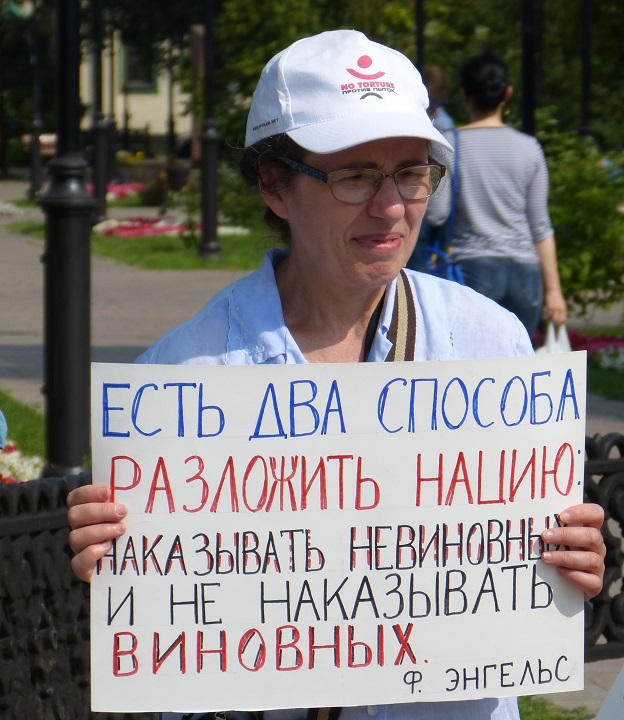 NO TORTURE
ПРОТИВ ПЫТОК
ЕСТЬ ДВА СПОСОБА
РАЗЛОЖИТЬ НАЦИЮ:
НАКАЗЫВАТЬ НЕВИНОВНЫХ
И НЕ НАКАЗЫВАТЬ
ВИНОВНЫХ.
Ф. ЭНГЕЛЬС